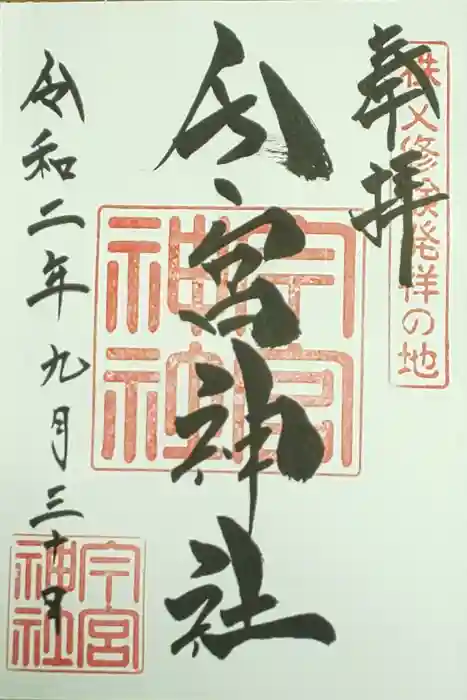 秩父修験発祥の地
奉拝
今宮神社
今宮
神社
令和二年九月三十日
今宮
神社